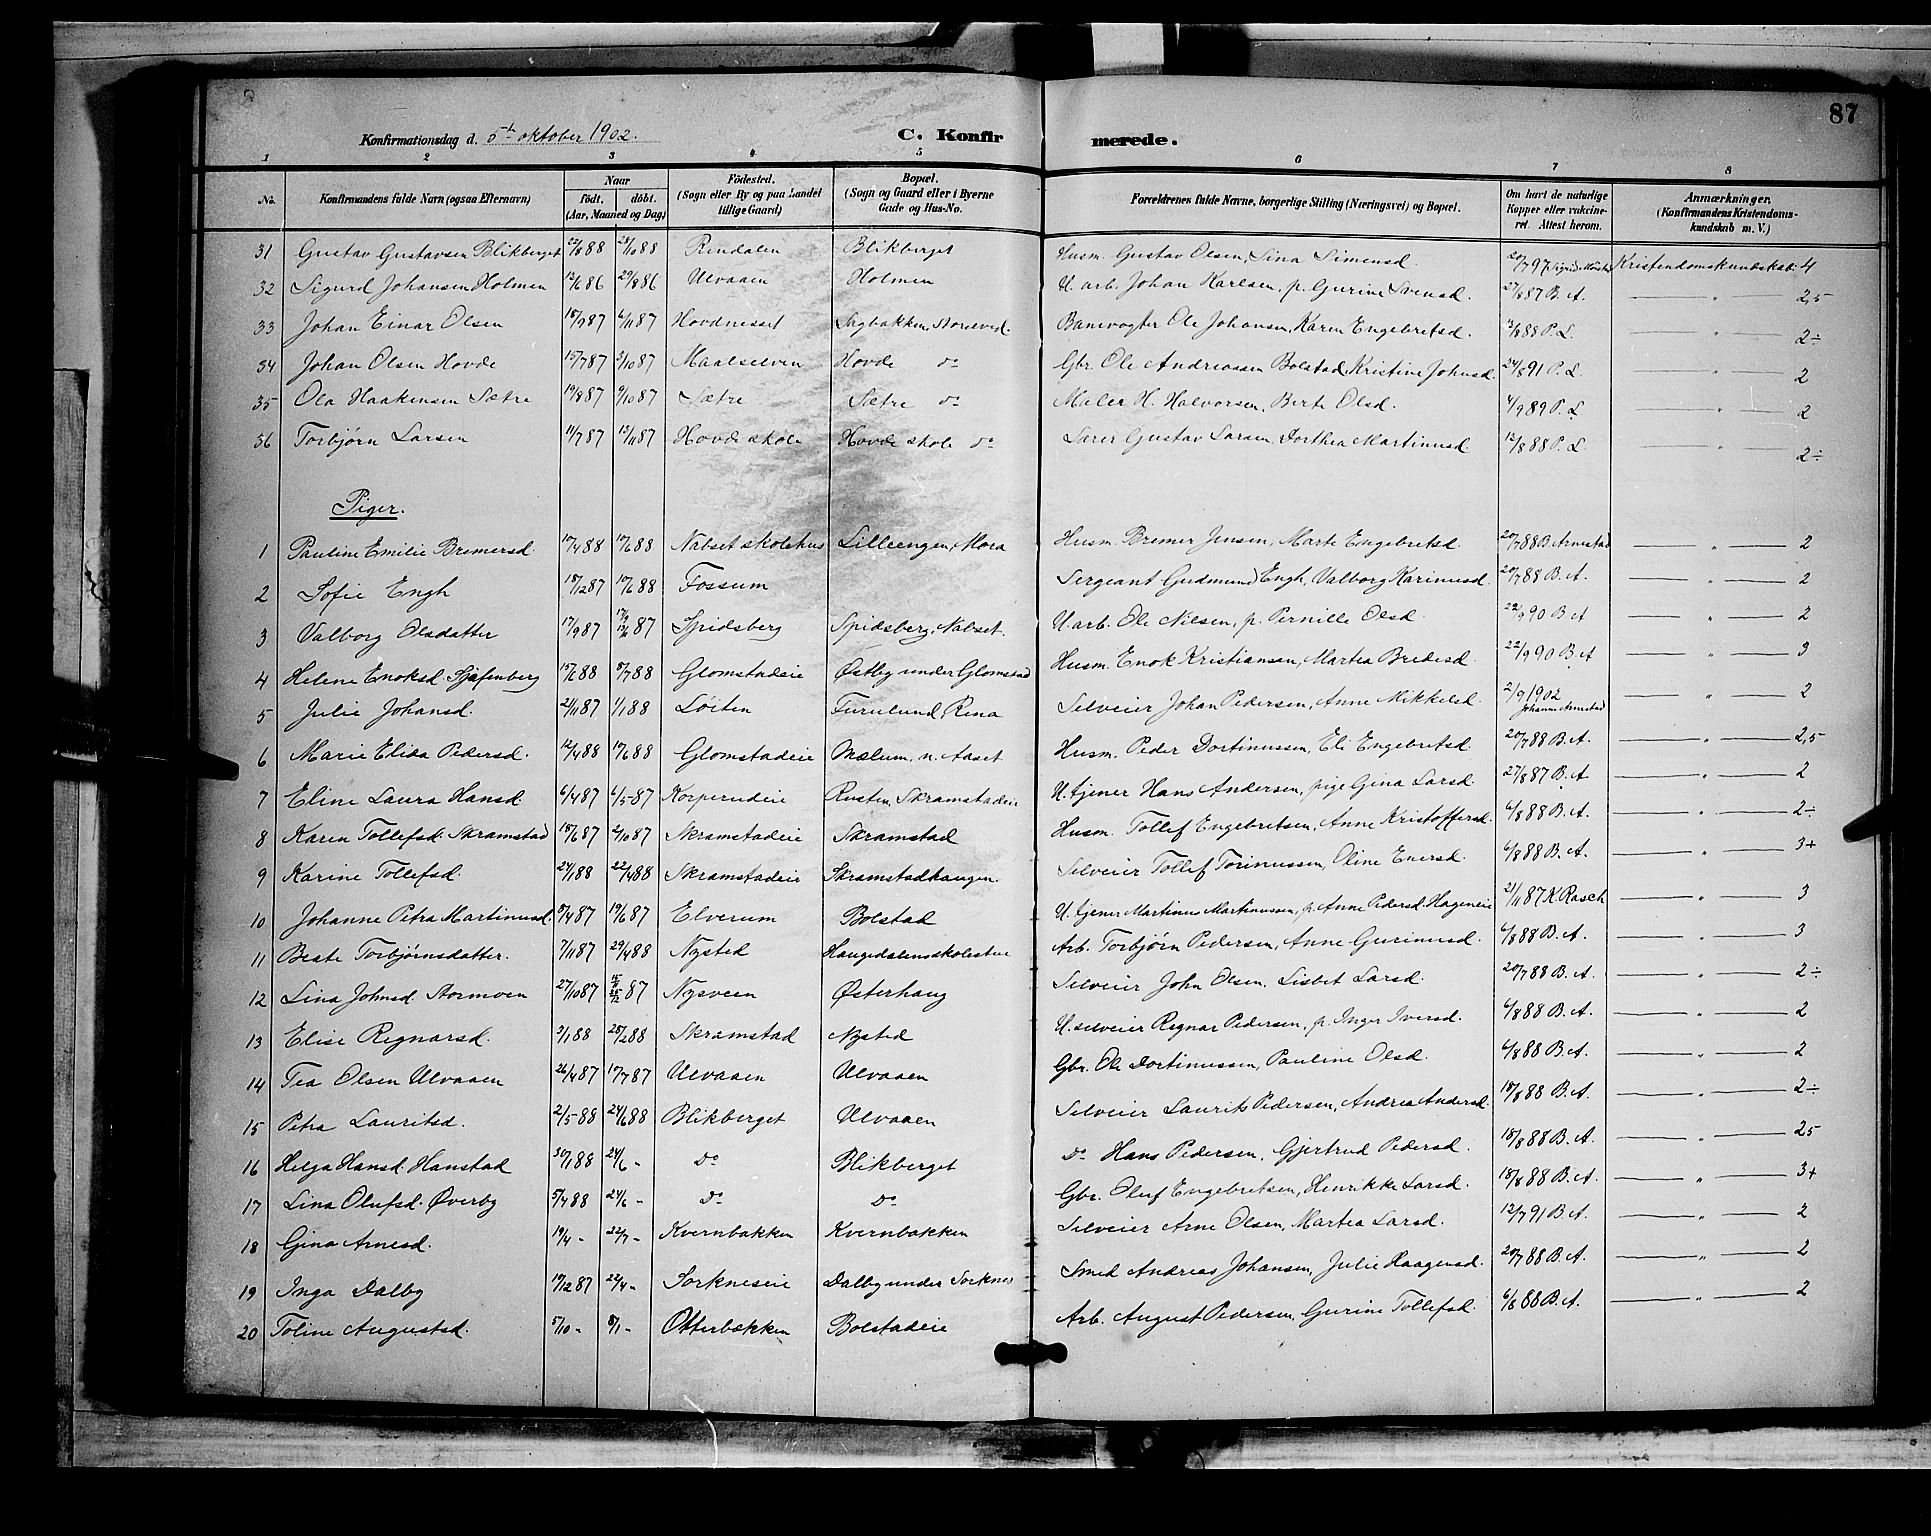 87
Konfirmationsdag d. 5te oktober 1902. C. Konfirmerede.
1 2 3 4 5 6 7 8
No. Konfirmandens fulde Navn (ogsaa Efternavn) Naar født. døbt. (Aar, Maaned og Dag) Fødested. (Sogn eller By og paa Landet tillige Gaard) Bopæl. (Sogn og Gaard eller i Byerne Gade og Hus-No. Forældrenes fulde Navne, borgerlige Stilling (Næringsvei) og Bopæl. Om havt de naturlige Kopper eller vakcineret. Attest herom. Anmærkninger. (Konfirmandens Kristendomskundskab m. V.)
31 Gustav Gustavsen Blikberget 22/8 88 28/10 88 Rendalen Blikberget Husm. Gustav Olsen, Lina Simensd. 20/7 97 Kristendomskundskab: 4
32 Sigurd Johansen Holmen 12/6 86 29/8 86 Ulvaaen Holmen U. arb. Johan Karlsen, p. Gurine Svensd. 27/8 87 B. A. — " — 2,5
33 Johan Einar Olsen 18/9 87 6/11 87 Hovdneset Sagbakken, Storelvd. Banevogter Ole Johansen, Karen Engebretsd. 12/8 88 P. L. — " — 2÷
34 Johan Olsen Hovde 15/7 87 3/10 87 Maalselven Hovde do Gbr. Ole Andreassen Bolstad, Kristine Johnsd. 24/8 91 P. L. — " — 2
35 Ola Haakensen Sætre 19/8 87 9/10 87 Sætre Sætre do Maler H. Halvorsen, Berte Olsd. 4/9 89 P. L. — " — 2
36 Torbjørn Larsen 11/7 87 13/11 87 Hovde skole Hovde skole do Lærer Gustav Larsen, Dorthea Martinusd. 12/8 88 P. L. — " — 2÷
Piger.
1 Pauline Emilie Bremersd. 10/4 88 10/6 88 Nabset skolehus Lilleengen, Mora Husm. Bremer Jensen, Marte Engebretsd. 20/7 88 B. Arnestad — " — 2
2 Sofie Engh 18/12 87 10/6 88 Fossum Sergeant Gudmund Engh, Valborg Karinusd. 20/7 88 B. A. — " — 2
3 Valborg Olsdatter 17/9 87 87 Spidsberg Spidsberg, Nabset. U. arb. Ole Nilsen, p. Pernille Olsd. 22/9 90 B. A — " — 2
4 Helene Enoksd. Sjøfenberg 15/6 88 8/7 88 Glomstadeie Østby under Glomstad Husm. Enok Kristiansen, Martea Bredesd. 22/9 90 B. A — " — 3
5 Julie Johansd. 21/11 87 1/1 88 Løiten Furulund, Rena Selveier Johan Pedersen, Anne Mikkelsd. 2/9 1902 Johanne Arnestad — " — 2
6 Marie Elida Pedersd. 12/4 88 10/6 88 Glomstadeie Mælum, n. Aaset Husm. Peder Dortinussen, Eli Engebretsd. 20/7 88 B. A. — " — 2,5
7 Eline Laura Hansd. 6/4 87 6/5 87 Korperudeie Rusten, Skramstadeie U. tjener Hans Andersen, pige Gina Larsd. 27/8 87 B. A — " — 2
8 Karen Tollefsd. Skramstad 18/6 87 2/10 87 Skramstadeie Skramstad Husm. Tollef Engebretsen, Anne Kristoffersd. 6/8 88 B. A. — " — 2÷
9 Karine Tollefsd. 24/1 88 22/4 88 Skramstadeie Skramstadhaugen. Selveier Tollef Torinussen, Oline Enersd. 6/8 88 B. A. — " — 3+
10 Johanne Petra Martinusd. 8/4 87 19/6 87 Elverum Bolstad U. tjener Martinus Martinussen, p. Anne Pedersd. Hageneie 21/11 87 K Rasch — " — 3
11 Beate Torbjørnsdatter. 7/11 87 29/4 88 Nysted Haugedalens skolestue Arb. Torbjørn Pedersen, Anne Gurinusd. 6/8 88 B. A. — " — 3
12 Lina Johnsd. Stormoen 27/10 87 87 Nysveen Østerhaug Selveier John Olsen, Lisbet Larsd. 20/7 88 B. A. — " — 2÷
13 Elise Regnarsd. 3/1 88 25/2 88 Skramstad Nysted U. selveier Regnar Pedersen, p. Inger Iversd. 6/8 88 B. A. — " — 2
14 Tea Olsen Ulvaaen 26/4 87 17/7 87 Ulvaaen Ulvaaen Gbr. Ole Dortinussen, Pauline Olsd. 6/8 88 B. A. — " — 2
15 Petra Lauritsd. 2/5 88 24/6 88 Blikberget Ulvaaen Selveier Laurits Pedersen, Andrea Andersd. 18/8 88 B. A. — " — 2÷
16 Helga Hansd. Hanstad 30/1 88 24/6 - do Blikberget do Hans Pedersen, Gjertrud Pedersd. 18/8 88 B. A. — " — 25
17 Lina Olufsd. Øverby 5/4 88 24/6 - do do Gbr. Oluf Engebretsen, Henrikke Larsd. 18/8 88 B. A. — " — 3+
18 Gina Arnesd. 19/4 - 22/7 - Kvernbakken Kvernbakken Selveier Arne Olsen, Martea Larsd. 12/7 91 B. A. — " — 2
19 Inga Dalby 19/12 87 22/4 - Sorkneseie Dalby under Sorknes Smed Andreas Johansen, Julie Haagensd. 20/7 88 B. A. — " — 2
20 Toline Augustsd. 5/10 - 8/1 - Otterbækken Bolstadeie Arb. August Pedersen, Gurine Tollefsd. 6/8 88 B. A. — " — 2